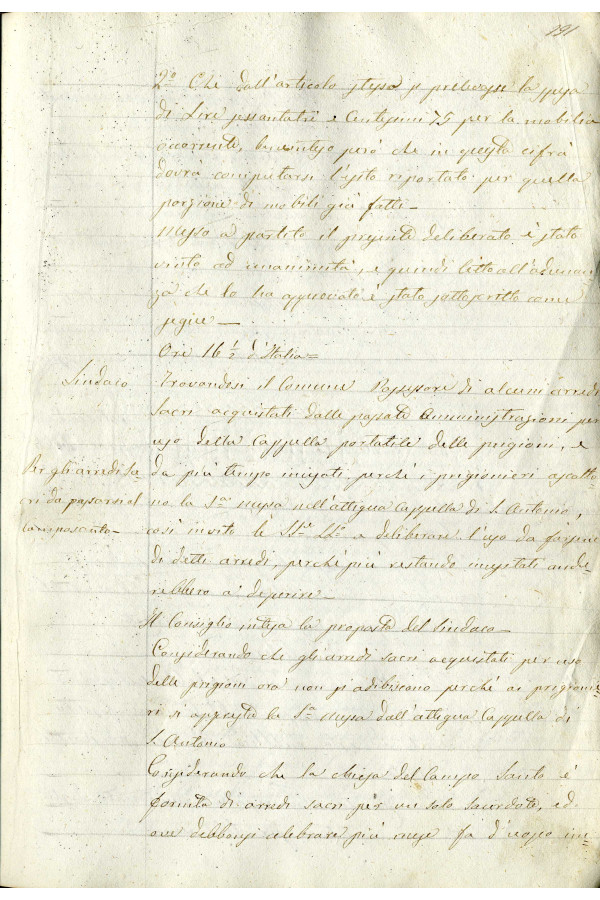 191
2º Che dall'articolo stesso si prelevasse la spesa
di Lire sessantatre e Centesimi 75 per la mobilia
occorrente, beninteso però che in questa cifra
dovrà computarsi l'esito riportato per quella
porzione di mobili già fatti.
Messo a partito il presente deliberato è stato
vinto ad unanimità, e quindi letto all'adunan
za che lo ha approvato è stato sottoscritto come
segue —
Ore 16 ½ d'Italia =
Sindaco
Trovandosi il Comune Possessore di alcuni arredi
Sacri acquistati dalle passate Amministrazioni per
uso della Cappella portatile delle prigioni, e
Per gli arredi Sa-
cri da passarsi al
Camposanto —
da più tempo inusati, perché i prigionieri ascolta-
no la S.ta Messa nell'attigua Cappella di S. Antonio,
così invito le SS.VV. a deliberare l'uso da farsene
di detti arredi, perché più restando inusitati ande-
rebbero a deperire —
Il Consiglio intesa la proposta del Sindaco —
Considerando che gli arredi sacri acquistati per uso
delle prigioni ora non si adibiscono perché ai prigionie-
ri si appresta la S.ta Messa dall'attigua Cappella di
S. Antonio
Considerando che la chiesa del Campo Santo è
fornita di arredi sacri per un solo Sacerdote, ed
ove debbonsi celebrare più messe fa d'uopo im-